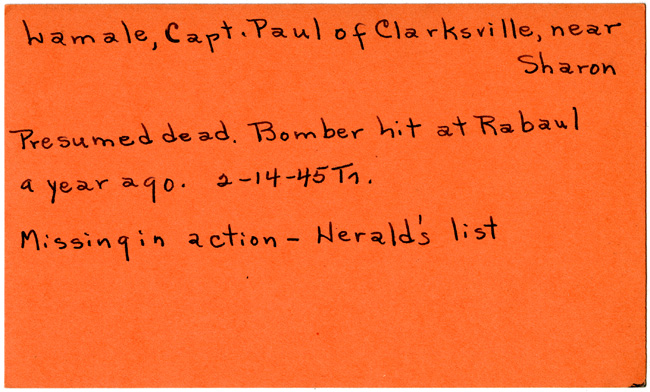 Lamale, Capt. Paul of Clarksville, near
Sharon
Presumed dead. Bomber hit at Rabaul
a year ago. 2-14-45 Tr.
Missing in action - Herald's list